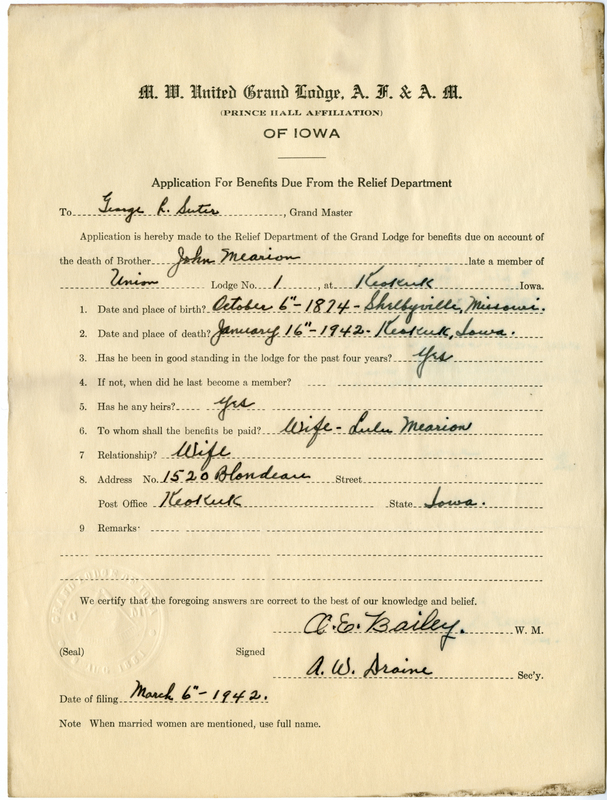 M. W. United Grand Lodge, A. F. & A. M.
(PRINCE HALL AFFILIATION)
OF IOWA
Application For Benefits Due From the Relief Department
To George L. Suter, Grand Master
Application is hereby made to the Relief Department of the Grand Lodge for benefits due on account of
the death of Brother John Mearion late a member of
Union Lodge No. 1, at Keokuk Iowa.
1. Date and place of birth? October 6"-1874-Shelbyville, Missouri.
2. Date and place of death? January 16"-1942-Keokuk, Iowa.
3. Has he been in good standing in the lodge for the past four years? Yes
4. If not, when did he last become a member?
5. Has he any heirs? Yes
6. To whom shall the benefits be paid? Wife-Lulu Mearion
7 Relationship? Wife
8. Address No. 1520 Blondeau Street
Post Office Keokuk State Iowa.
9 Remarks-
We certify that the foregoing answers are correct to the best of our knowledge and belief.
C. E. Bailey. W. M.
(Seal) Signed
A. W. Draine Sec'y.
Date of filing March 6"-1942.
Note When married women are mentioned, use full name.